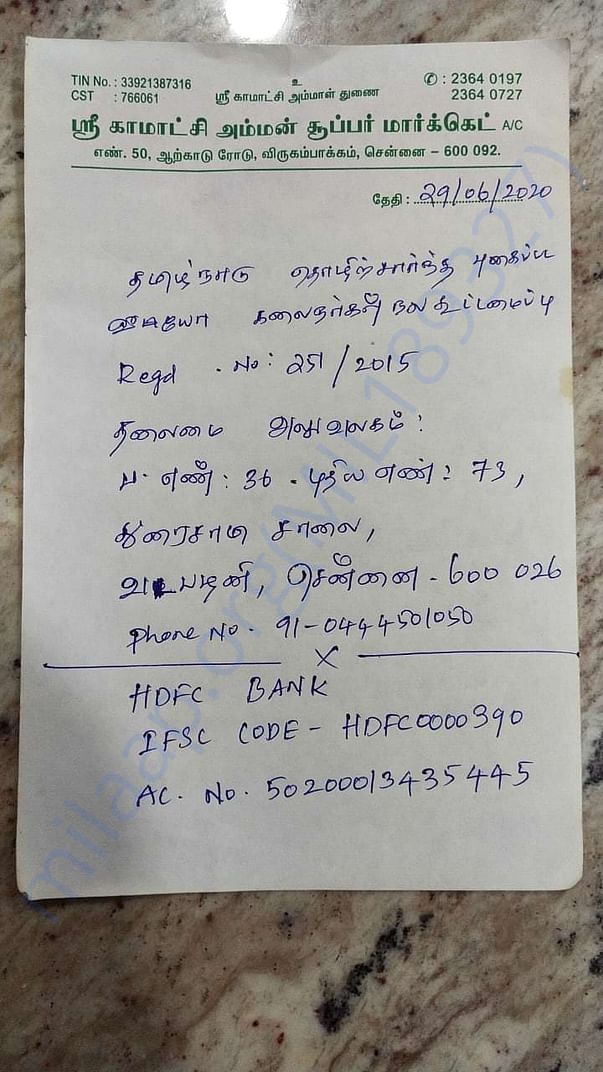 TIN No. : 33921387316
CST : 766061
உ
ஸ்ரீ காமாட்சி அம்மாள் துணை
✆ : 2364 0197
2364 0727
ஸ்ரீ காமாட்சி அம்மன் சூப்பர் மார்க்கெட் A/C
எண். 50, ஆற்காடு ரோடு, விருகம்பாக்கம், சென்னை – 600 092.
தேதி : 29/06/2020
தமிழ்நாடு தொழிற்சார்ந்த புகைப்பட
கலைஞர்கள் நல கூட்டமைப்பு
Regd . No : 251 / 2015
தலைமை அலுவலகம் :
ப. எண் : 36 . புதிய எண் : 73,
துரைசாமி சாலை,
வடபழனி, சென்னை - 600 026
Phone No . 91-0444501050
X
HDFC BANK
IFSC CODE - HDFC0000390
AC. No. 50200013435445
milaap.org(MIL189327)